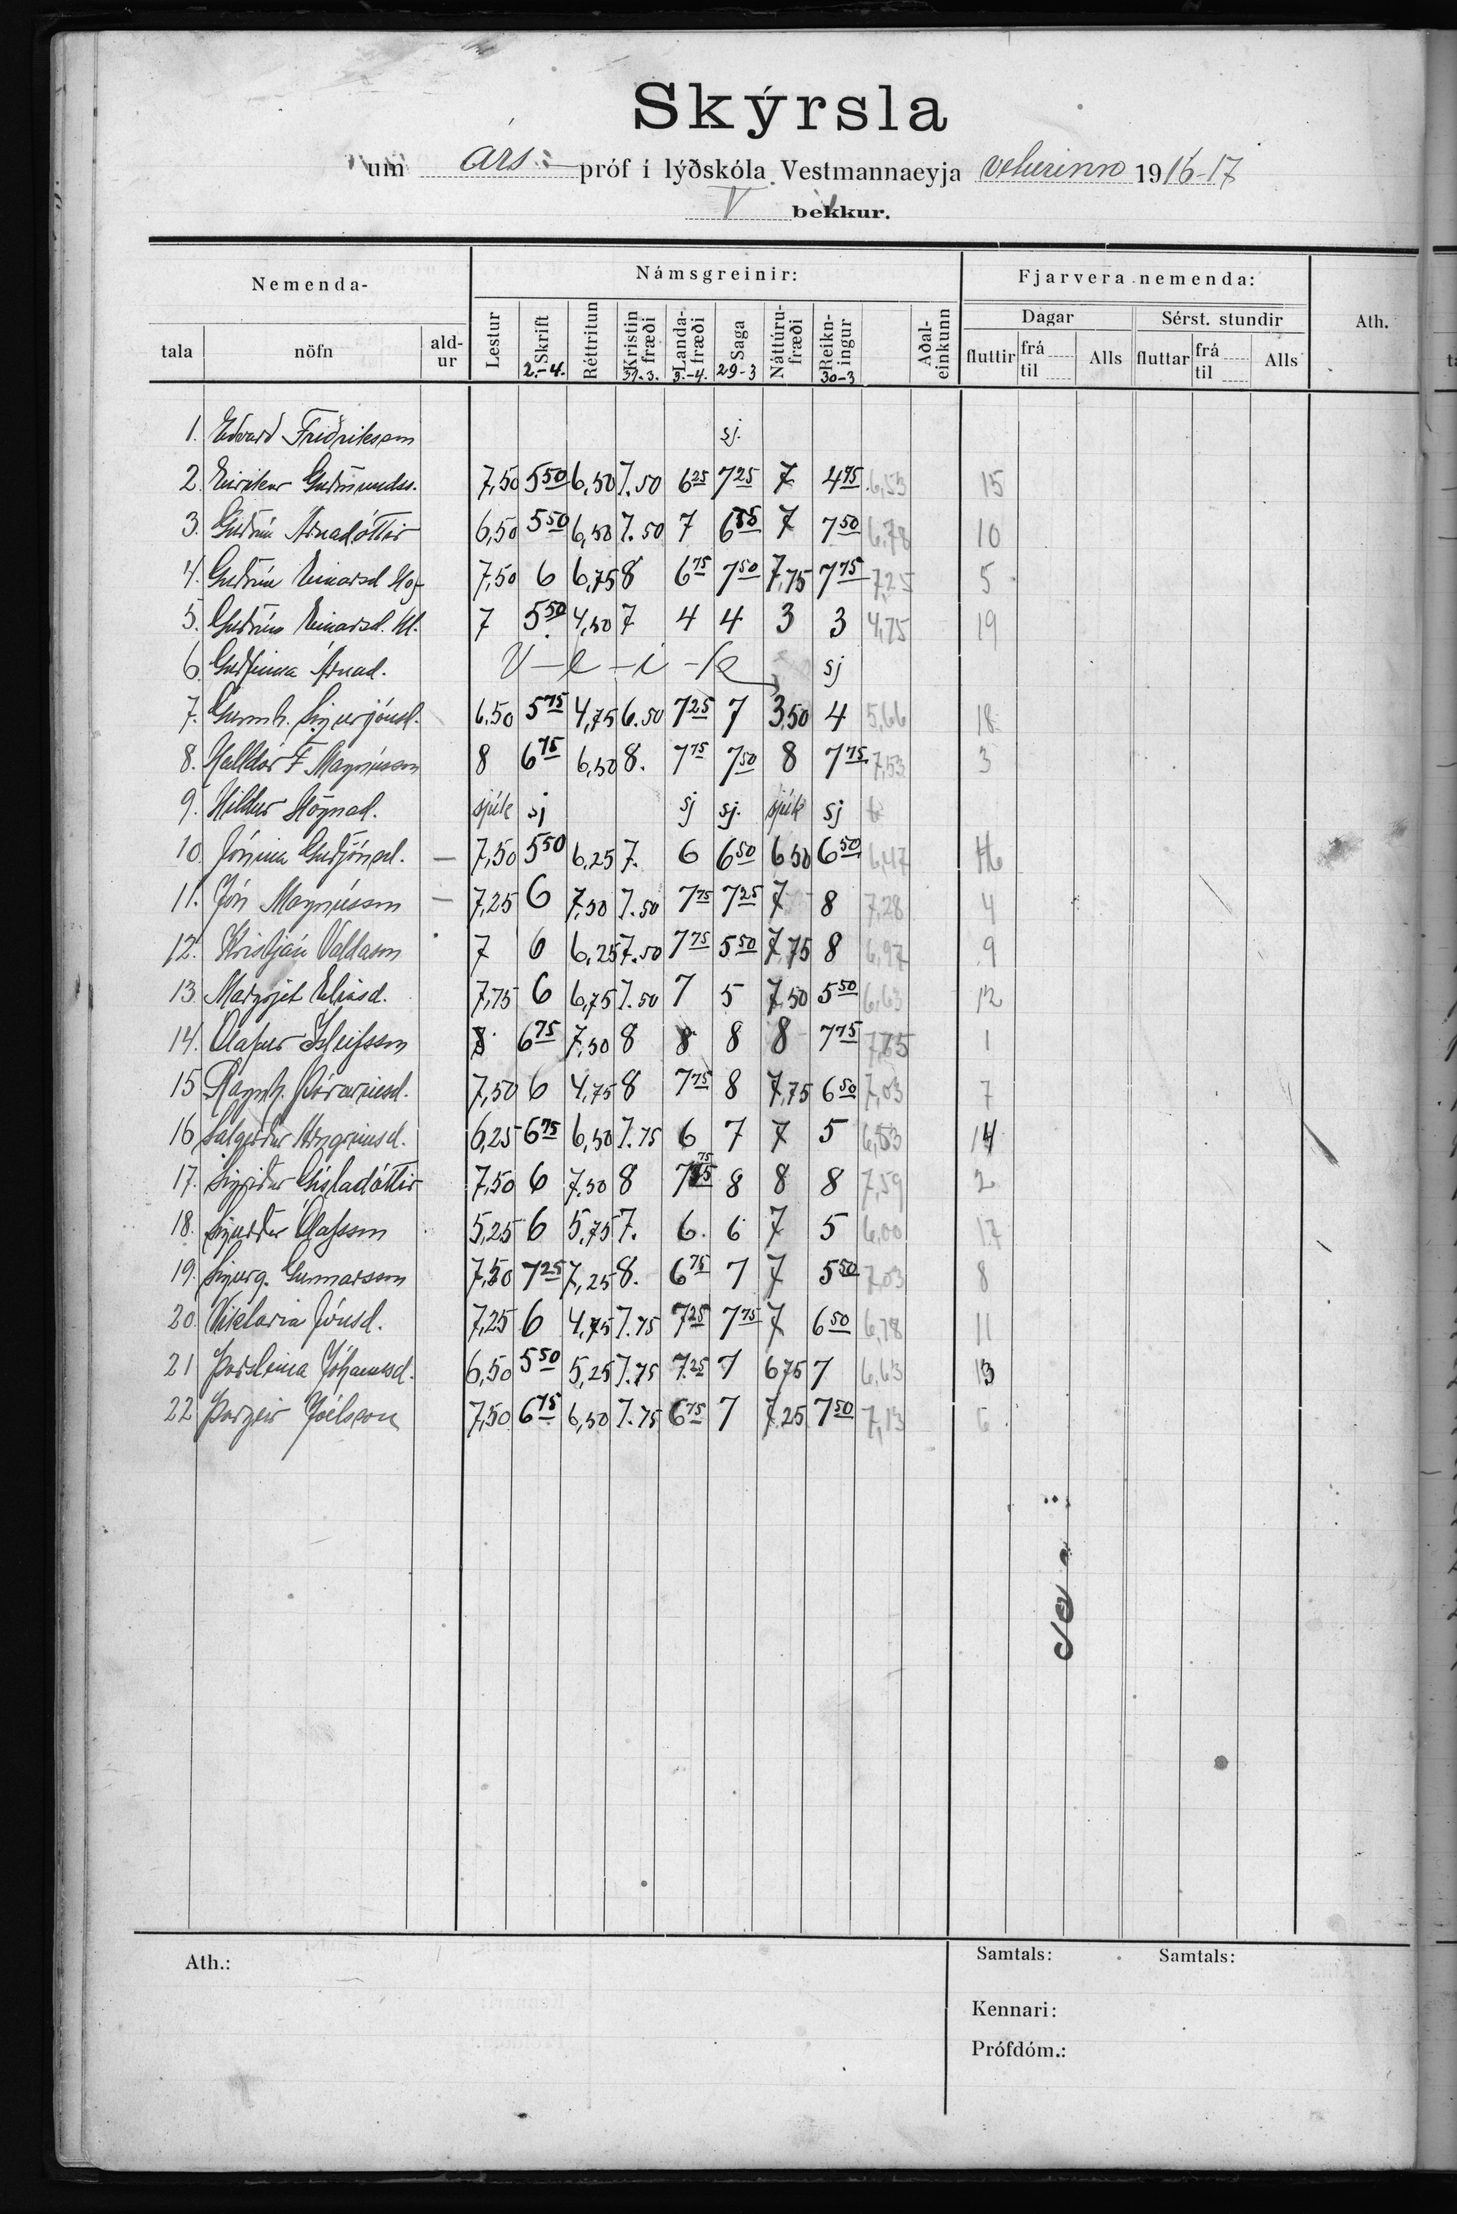 Skýrsla
um árs- próf í lýðskóla Vestmannaeyja veturinn 1916-17
V bekkur.
Nemenda- Námsgreinir: Fjarvera nemenda: Ath.
Dagar Sérst. stundir
tala nöfn ald-ur Lestur Skrift Réttritun Kristin fræði Landa-fræði Saga Náttúru-fræði Reikn-ingur Aðal-einkunn fluttir frá til Alls fluttar frá til Alls
2.-4. 31.-3. 3.-4. 29-3 30-3
1. Edvard Friðriksson sj.
2. Eiríkur Guðmundss. 7,50 5 50 6,50 7.50 6 25 7 25 7 4 75 6,53 15
3. Guðrún Árnadóttir 6,50 5 50 6,50 7.50 7 7 7 50 6,78 10
4. Guðrún Einarsd. 7,50 6 6,75 8 6 75 7 50 7,75 7 75 7,25 5
5. Guðrún Einarsd. 7 5 50 4,50 7 4 4 3 3 4,75 19
6. Guðfinna Árnad. V-e-i-k sj
7. Gunnh. Sigurjónsd. 6,50 5 75 4,75 6.50 7 25 7 3,50 4 5,66 18
8. Halldór F Magnússon 8 6 75 6,50 8. 7 75 7 50 8 7 75 7,53 3
9. Hildur Högnad. sjúk sj sj sj. sjúk sj
10. Jónína Guðjónsd. — 7,50 5 50 6,25 7. 6 6 50 6 50 6 50 6,47
11. Jón Magnússon — 7,25 6 7,50 7.50 7 75 7 25 7 8 7,28 4
12. Kristján Valdason 7 6 6,25 7.50 7 75 5 50 7,75 8 6,97 9
13. Margrjet Elíasd. 7,75 6 6,75 7.50 7 5 7,50 5 50 6,63 12
14. Ólafur Ísleifsson 8 6 75 7,50 8 8 8 8 7 75 1
15 Ragnh. Þórarinsd. 7,50 6 4,75 8 7 75 8 7,75 6 50 7,03 7
16 Salgerður Arngrímsd. 6,25 6 75 6,50 7.75 6 7 7 5 6,53 14
17. Sigríður Gísladóttir 7,50 6 7.50 8 7 75 8 8 8 7,59 2
18. Sigurður Ólafsson 5,25 6 5,75 7. 6. 6 7 5 6,00 17
19. Sigurg. Gunnarsson 7,50 7 25 7,25 8. 6 75 7 7 5 50 7,03 8
20. Viktoría Jónsd. 7,25 6 4,75 7.75 7 25 7 75 7 6 50 6,78 11
21 Þorsteina Jóhannsd. 6,50 5 50 5,25 7.75 7.25 7 6 75 7 6,63 13
22 Þorgeir Jóelsson 7,50 6 75 6,50 7.75 6 75 7 7,25 7 50 7,13 6
Ath.: Samtals: Samtals:
Kennari:
Prófdóm.: